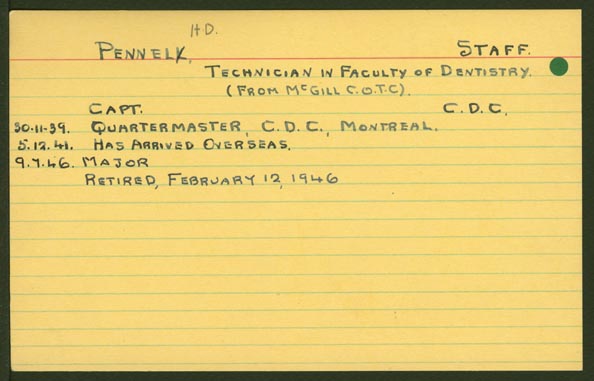 H.D.
PENNELL, STAFF.
TECHNICIAN IN FACULTY OF DENTISTRY.
(FROM McGILL C.O.T.C).
CAPT. C.D.C.
30.11.39. QUARTERMASTER, C.D.C., MONTREAL.
5.12.41. HAS ARRIVED OVERSEAS.
9.7.46. MAJOR
RETIRED, FEBRUARY 12, 1946